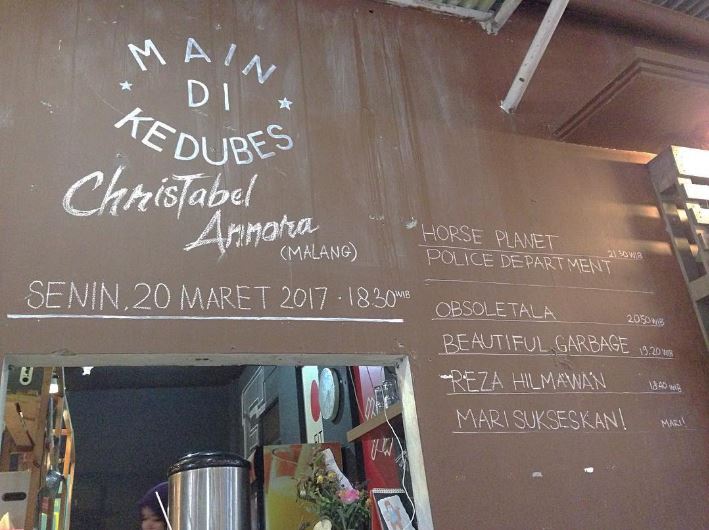 MAIN
DI
KEDUBES
Christabel
Annora
(MALANG)
SENIN, 20 MARET 2017 · 18.30 WIB
HORSE PLANET
POLICE DEPARTMENT 21.30 WIB
OBSOLETALA 20.50 WIB
BEAUTIFUL GARBAGE 19.20 WIB
REZA HILMAWAN 18.40 WIB
MARI SUKSESKAN! MARI!